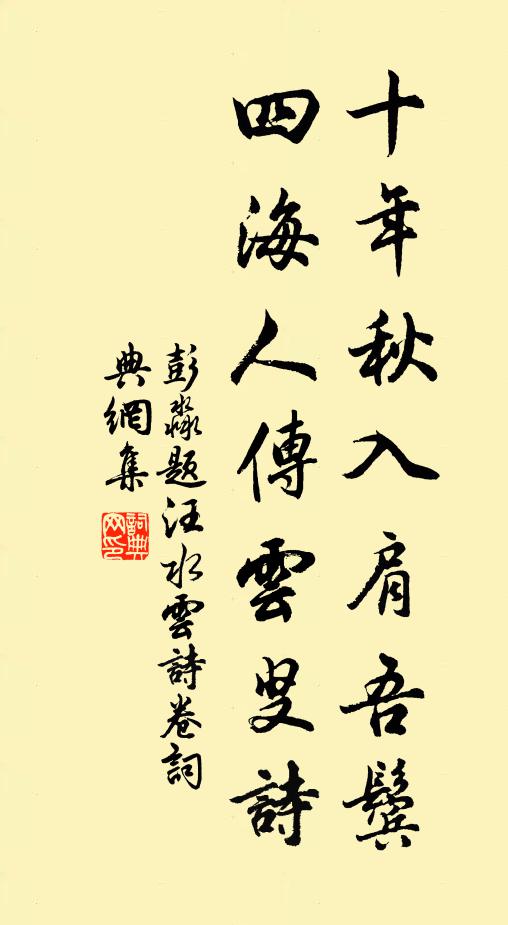 十年秋入肩吾鬢
四海人傳雲叟詩
彭淼題汪水雲詩卷詞
典網集
詞典
网印